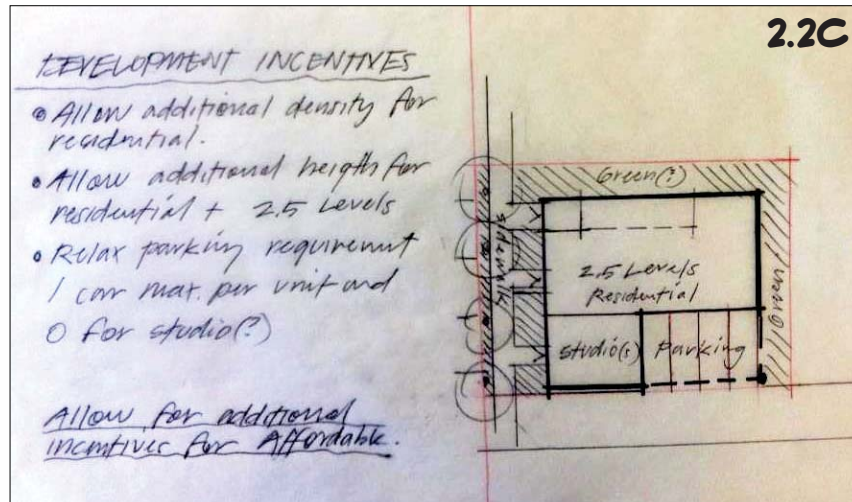 2.2C
DEVELOPMENT INCENTIVES
Allow additional density for
residential.
Allow additional heigth for
residential + 2.5 Levels
Relax parking requirement
1 car max. per unit and
0 for studio(?)
Allow for additional
incentives for Affordable.
Green(?)
sidewalk
2.5 Levels
Residential
Green
studio(s)
Parking